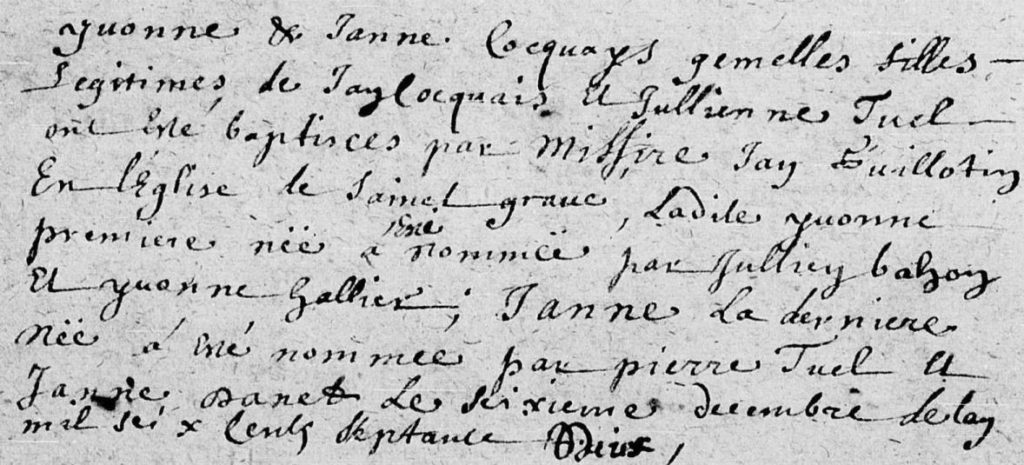 yvonne & Janne Cocquays gemelles filles
Legitimes de Jay Cocquais Et Jullienne Tuel
ont esté baptisees par Missire Jay Guillotin
En l'Eglise de Sainct grave, Ladite yvonne
premiere néë a esté nomméë par Jullien bahon
Et yvonne hallier; Janne La derniere
néë á esté nommee par pierre Tuel Et
Janne Danet Le seixieme decembre de lan
mil seix Cents septante Deux,